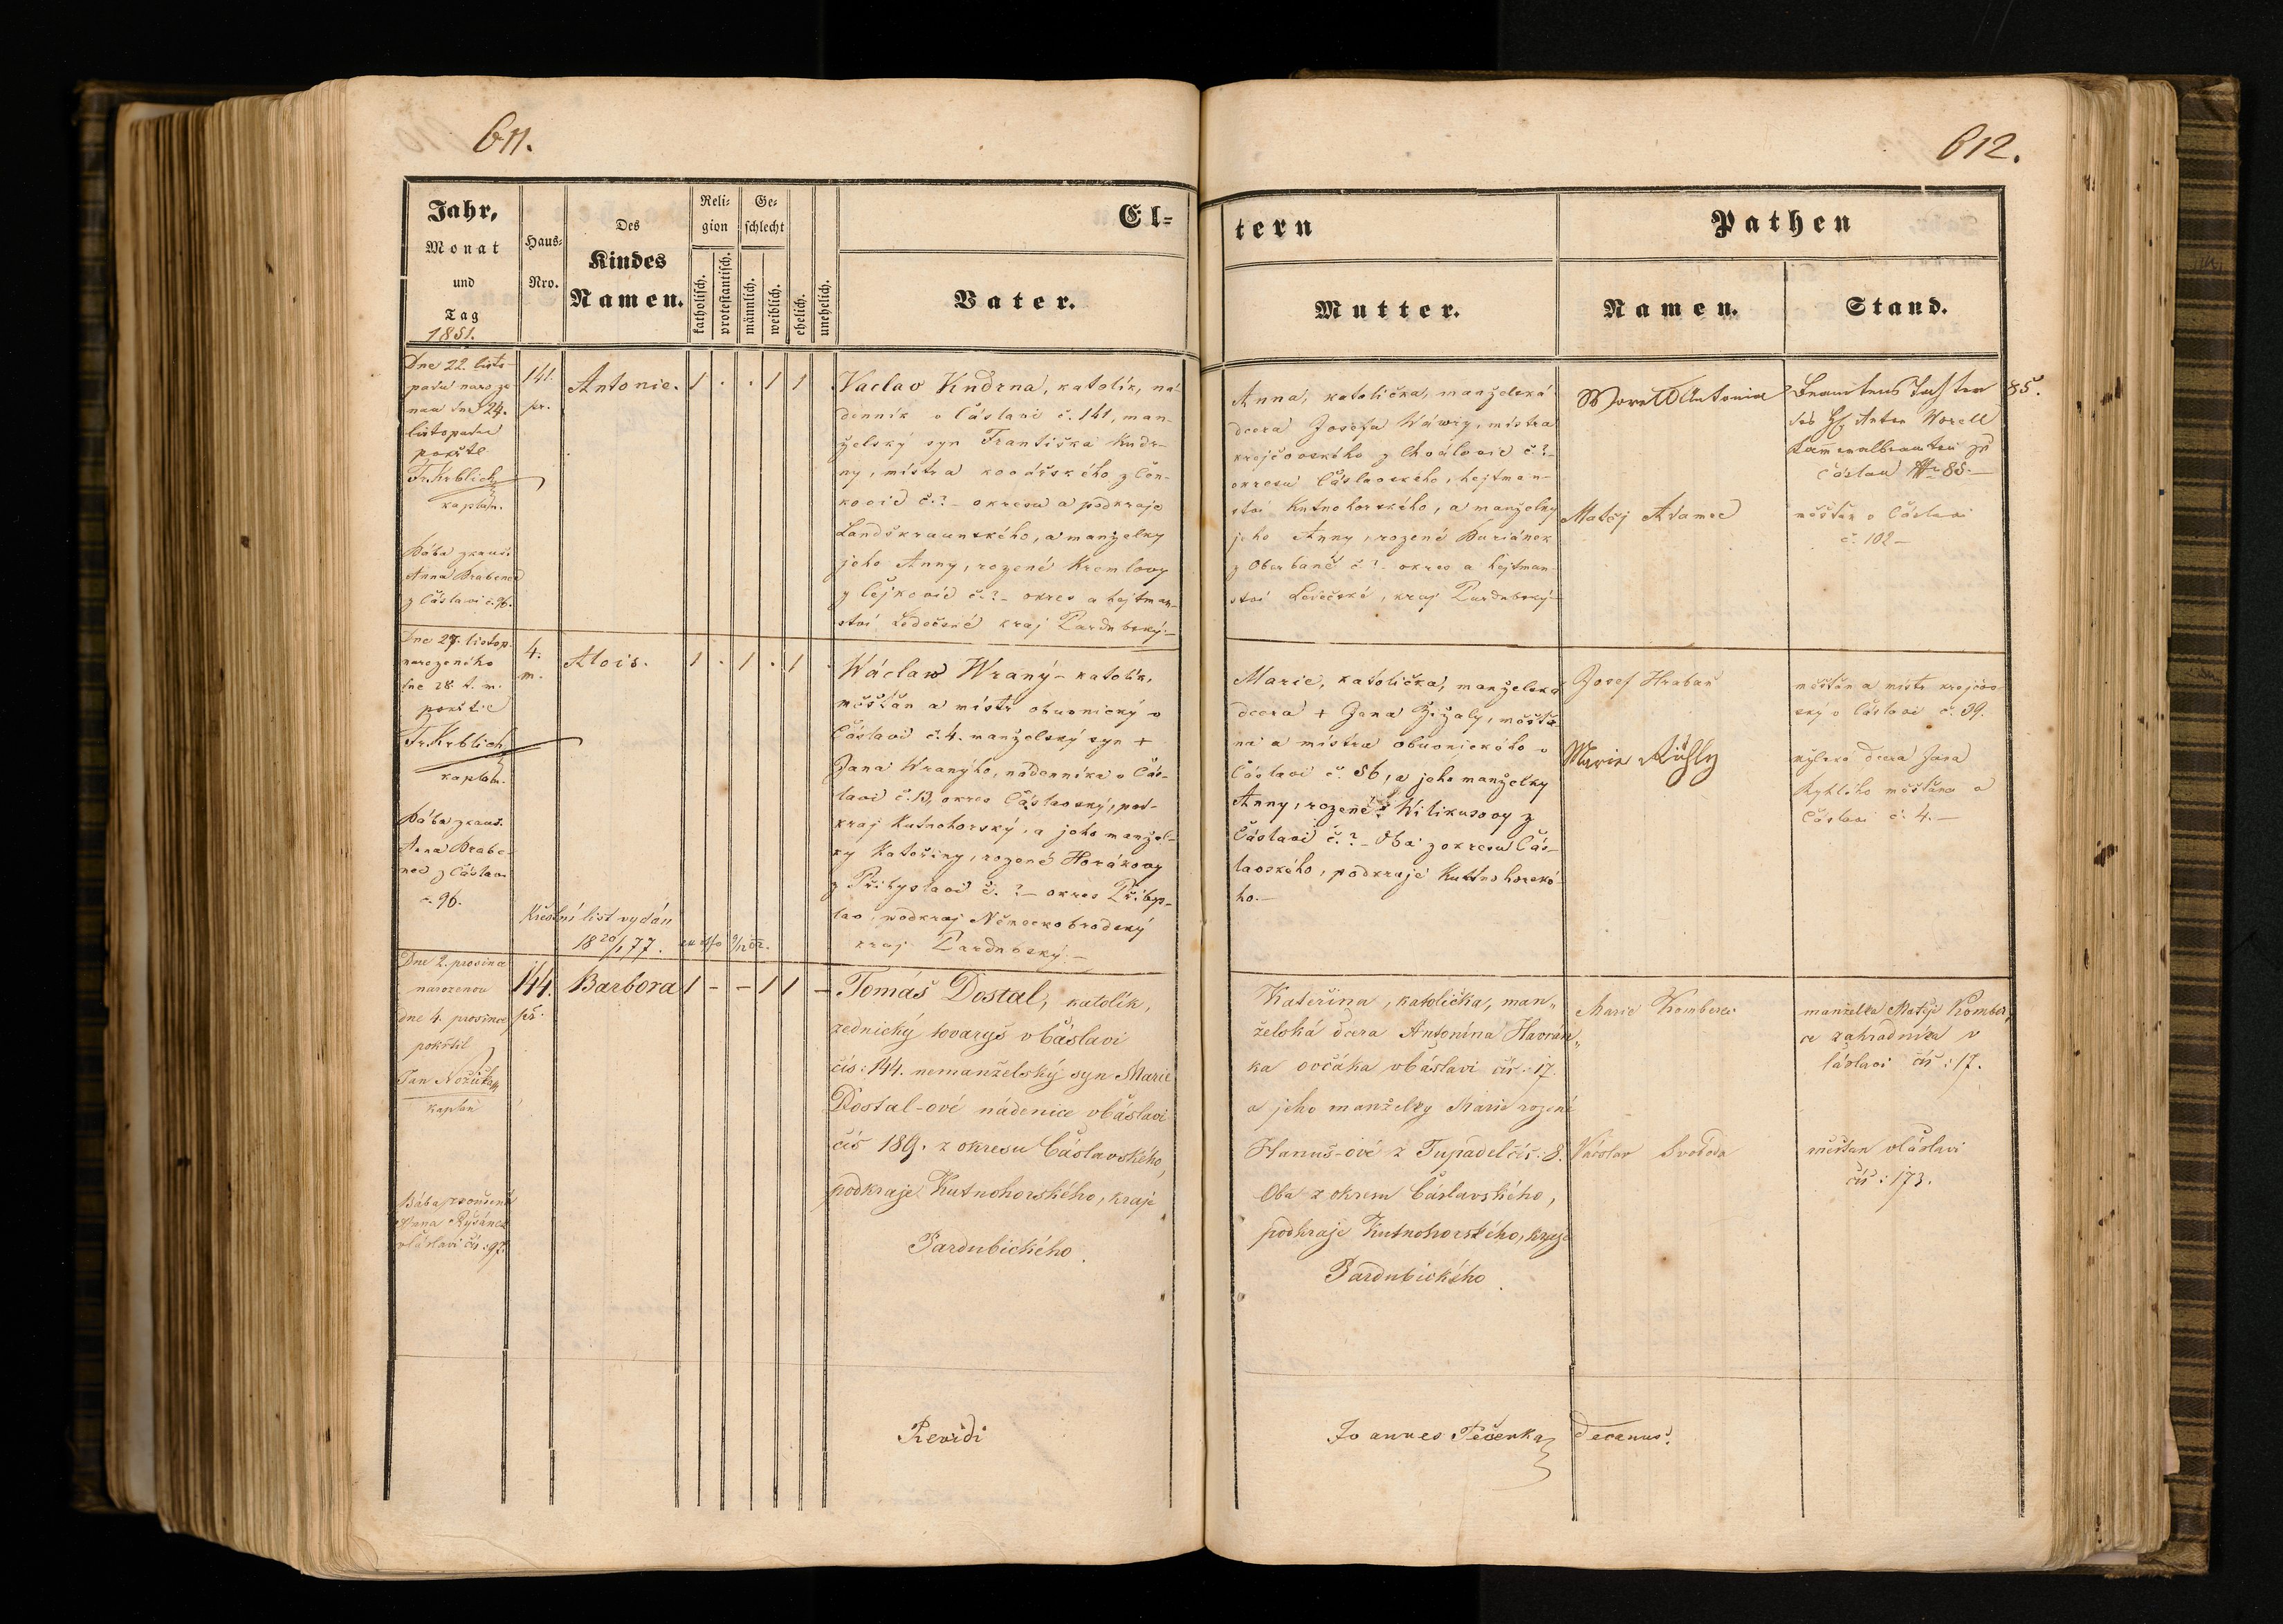 611.
612.
Jahr,
Monat
und
Tag
1851.
Haus-
Nro.
Des
Kindes
Namen.
Reli-
gion
katholisch.
protestantisch.
Ge-
schlecht
männlich.
weiblich.
ehelich.
unehelich.
El-
Vater.
tern
Mutter.
Pathen
Namen.
Stand.
Dne 22. listo-
padu naroze
nau dne 24.
listopadu
pokřtil
Fr. Krblich
kaplan.
Bába zkouš.
Anna Brabenec
z Čáslavi č. 96.
141.
pr.
Antonie.
1 . . 1 1
Vaclav Kudrna, katolík, ná-
denník v Čáslavi č. 141, man-
želský syn Františka Kudr-
ny, místra kovářského z Čen-
kovic č. ? – okresu a podkraje
Landškraunského, a manželky
jeho Anny, rozené Kremlovy
z Čejkovic č. ? – okres a hejtman-
ství Ledečské kraj Pardubský. –
Anna, katolička, manželská
dcera Josefa Wáwry, místra
krejčovského z Chválovic č. ? –
okresu Čáslavského, hejtman-
ství Kutnohorského, a manželky
jeho Anny, rozené Buriánek
z č. ? – okres a hejtman-
ství Ledečské, kraj Pardubský –
Worell Antonia
Beamtens Tochter
des H. Anton Worell
Kammeralbeamten zu
Čáslau Nr 85. –
85.
Matěj Adamec
měšťan v Čáslavi
č. 102 –
Dne 27. listop.
narozeného
dne 28. t. m.
pokřtil
Fr. Krblich
kaplan.
Bába zkouš.
Anna Brabe-
nec z Čáslav.
č. 96.
4.
m.
Alois.
1 . 1 . 1 .
Wáclaw Wraný – katolík,
měšťan a místr obuvnický v
Čáslavi č. 4. manželský syn +
Jana Wranýho, nádenníka v Čás-
lavi č. 13, okres Čáslavský, pod-
kraj Kutnohorský, a jeho manžel-
ky Kateřiny, rozené Horákovy
z Přibyslavi č. ? – okres Přibys-
lav, podkraj Německobrodský
kraj Pardubský. –
Křestní list vydán
18 20/1 77.
Marie, katolička, manželská
dcera + Jana Žižaly, měšťa
na a místra obuvnického v
Čáslavi č. 56, a jeho manželky
Anny, rozené Wilikusovy z
Čáslavi č. ? – Oba z okresu Čás-
lavského, podkraje Kuttnohorské-
ho. –
Josef Hrabaň
měšťan a místr krejčov
ský v Čáslavi č. 39.
Marie
dcera Jana
měšťana v
Čáslavi č. 4. –
Dne 2. prosince
narozenou
dne 4. prosince
pokřtil
Jan Nožička
kaplan
Bába zkoušená
Anna Ryšánek
v Čáslavi čís: 97.
144.
Barbora
1 – – 1 1 –
Tomáš Dostal, katolík,
zednický tovaryš v Čáslavi
čís: 144. nemanželský syn Marie
Dostal-ové nádenice v Čáslavi
čís 189. z okresu Čáslavského,
podkraje Kutnohorského, kraje
Pardubického.
Kateřina, katolička, man„
želská dcera Antonína Havrán„
ka ovčáka v Čáslavi čís: 17.
a jeho manželky Marie rozené
Hanuš-ové z Tupadel čís: 8.
Oba z okresu Čáslavského,
podkraje Kutnohorského, kraje
Pardubického.
Marie Komberec
manželka Matěje Komber„
ce zahradníka v
Čáslavi čís: 17.
Václav Svoboda
měšťan v Čáslavi
čís: 173.
Revidi
Joannes Pečenka
Decanus.